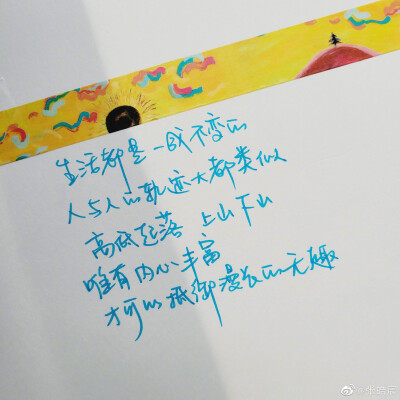 生活都是一成不变的
人与人的轨迹大都类似
高低起落 上山下山
唯有内心丰富
才可以抵御漫长的无趣